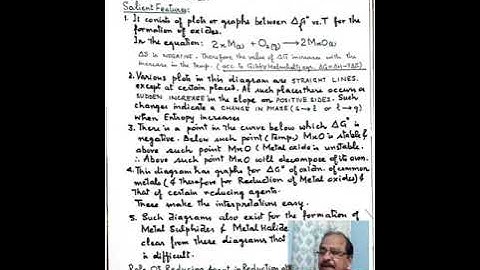 Salient Features:
1. It consists of plots or graphs between ΔG° vs. T for the
formation of oxides.
In the equation: 2xM(s) + O2(g) → 2MxO(s)
ΔS is NEGATIVE. Therefore the value of ΔG increases with the
increase in the Temp. (acc to Gibbs Helmholtz eqn. ΔG=ΔH-TΔS)
2. Various plots in this diagram are STRAIGHT LINES.
except at certain places. At such places there occurs a
SUDDEN INCREASE in the slope on POSITIVE SIDES. Such
changes indicate a CHANGE IN PHASE (s→l or l→g)
when Entropy increases
3. There is a point in the curve below which ΔG° is
negative. Below such point (Temp.) MxO is stable &
above such point MxO (Metal oxide is unstable.
∴ Above such point MxO will decompose of its own.
4. This diagram has graphs for ΔG° of oxidn. of common
metals (& therefore for Reduction of Metal oxides) &
that of certain reducing agents.
These make the interpretations easy.
5. Such diagrams also exist for the formation of
Metal Sulphides & Metal Halide
clear from these diagrams that
is difficult.
Role Of Reducing Agent in Reduction of